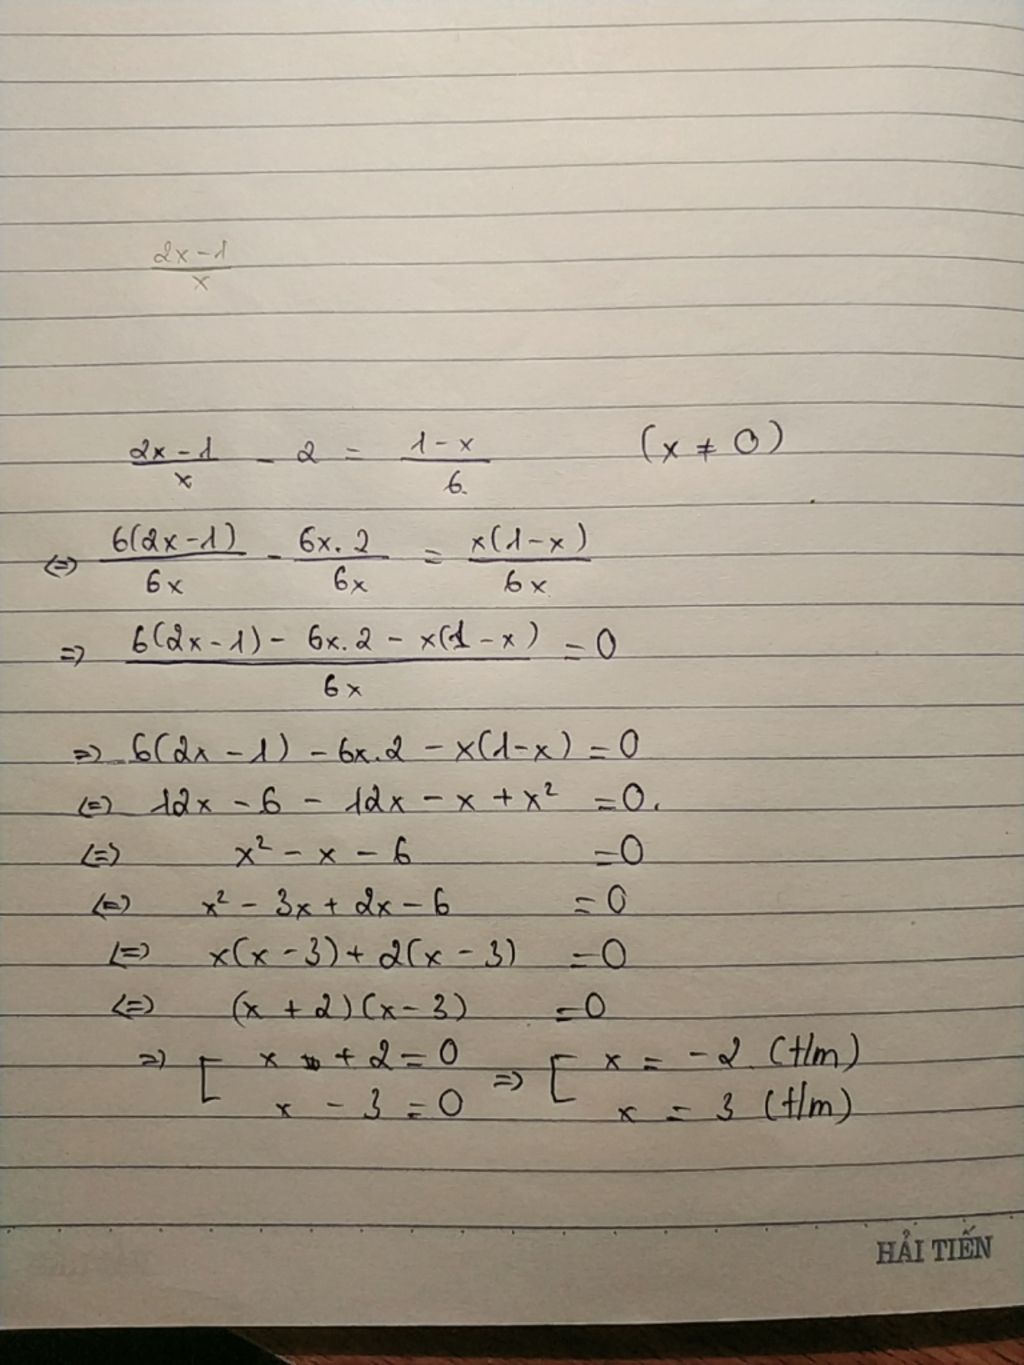 2x-1/x
2x-1/x - 2 = 1-x/6 (x ≠ 0)
<=> 6(2x-1)/6x - 6x.2/6x = x(1-x)/6x
=> 6(2x-1) - 6x.2 - x(1-x)/6x = 0
=> 6(2x-1) - 6x.2 - x(1-x) = 0
<=> 12x - 6 - 12x - x + x² = 0.
<=> x² - x - 6 = 0
<=> x² - 3x + 2x - 6 = 0
<=> x(x-3) + 2(x-3) = 0
<=> (x+2)(x-3) = 0
=> [ x + 2 = 0 => [ x = -2 (t/m)
x - 3 = 0 x = 3 (t/m)
HẢI TIẾN